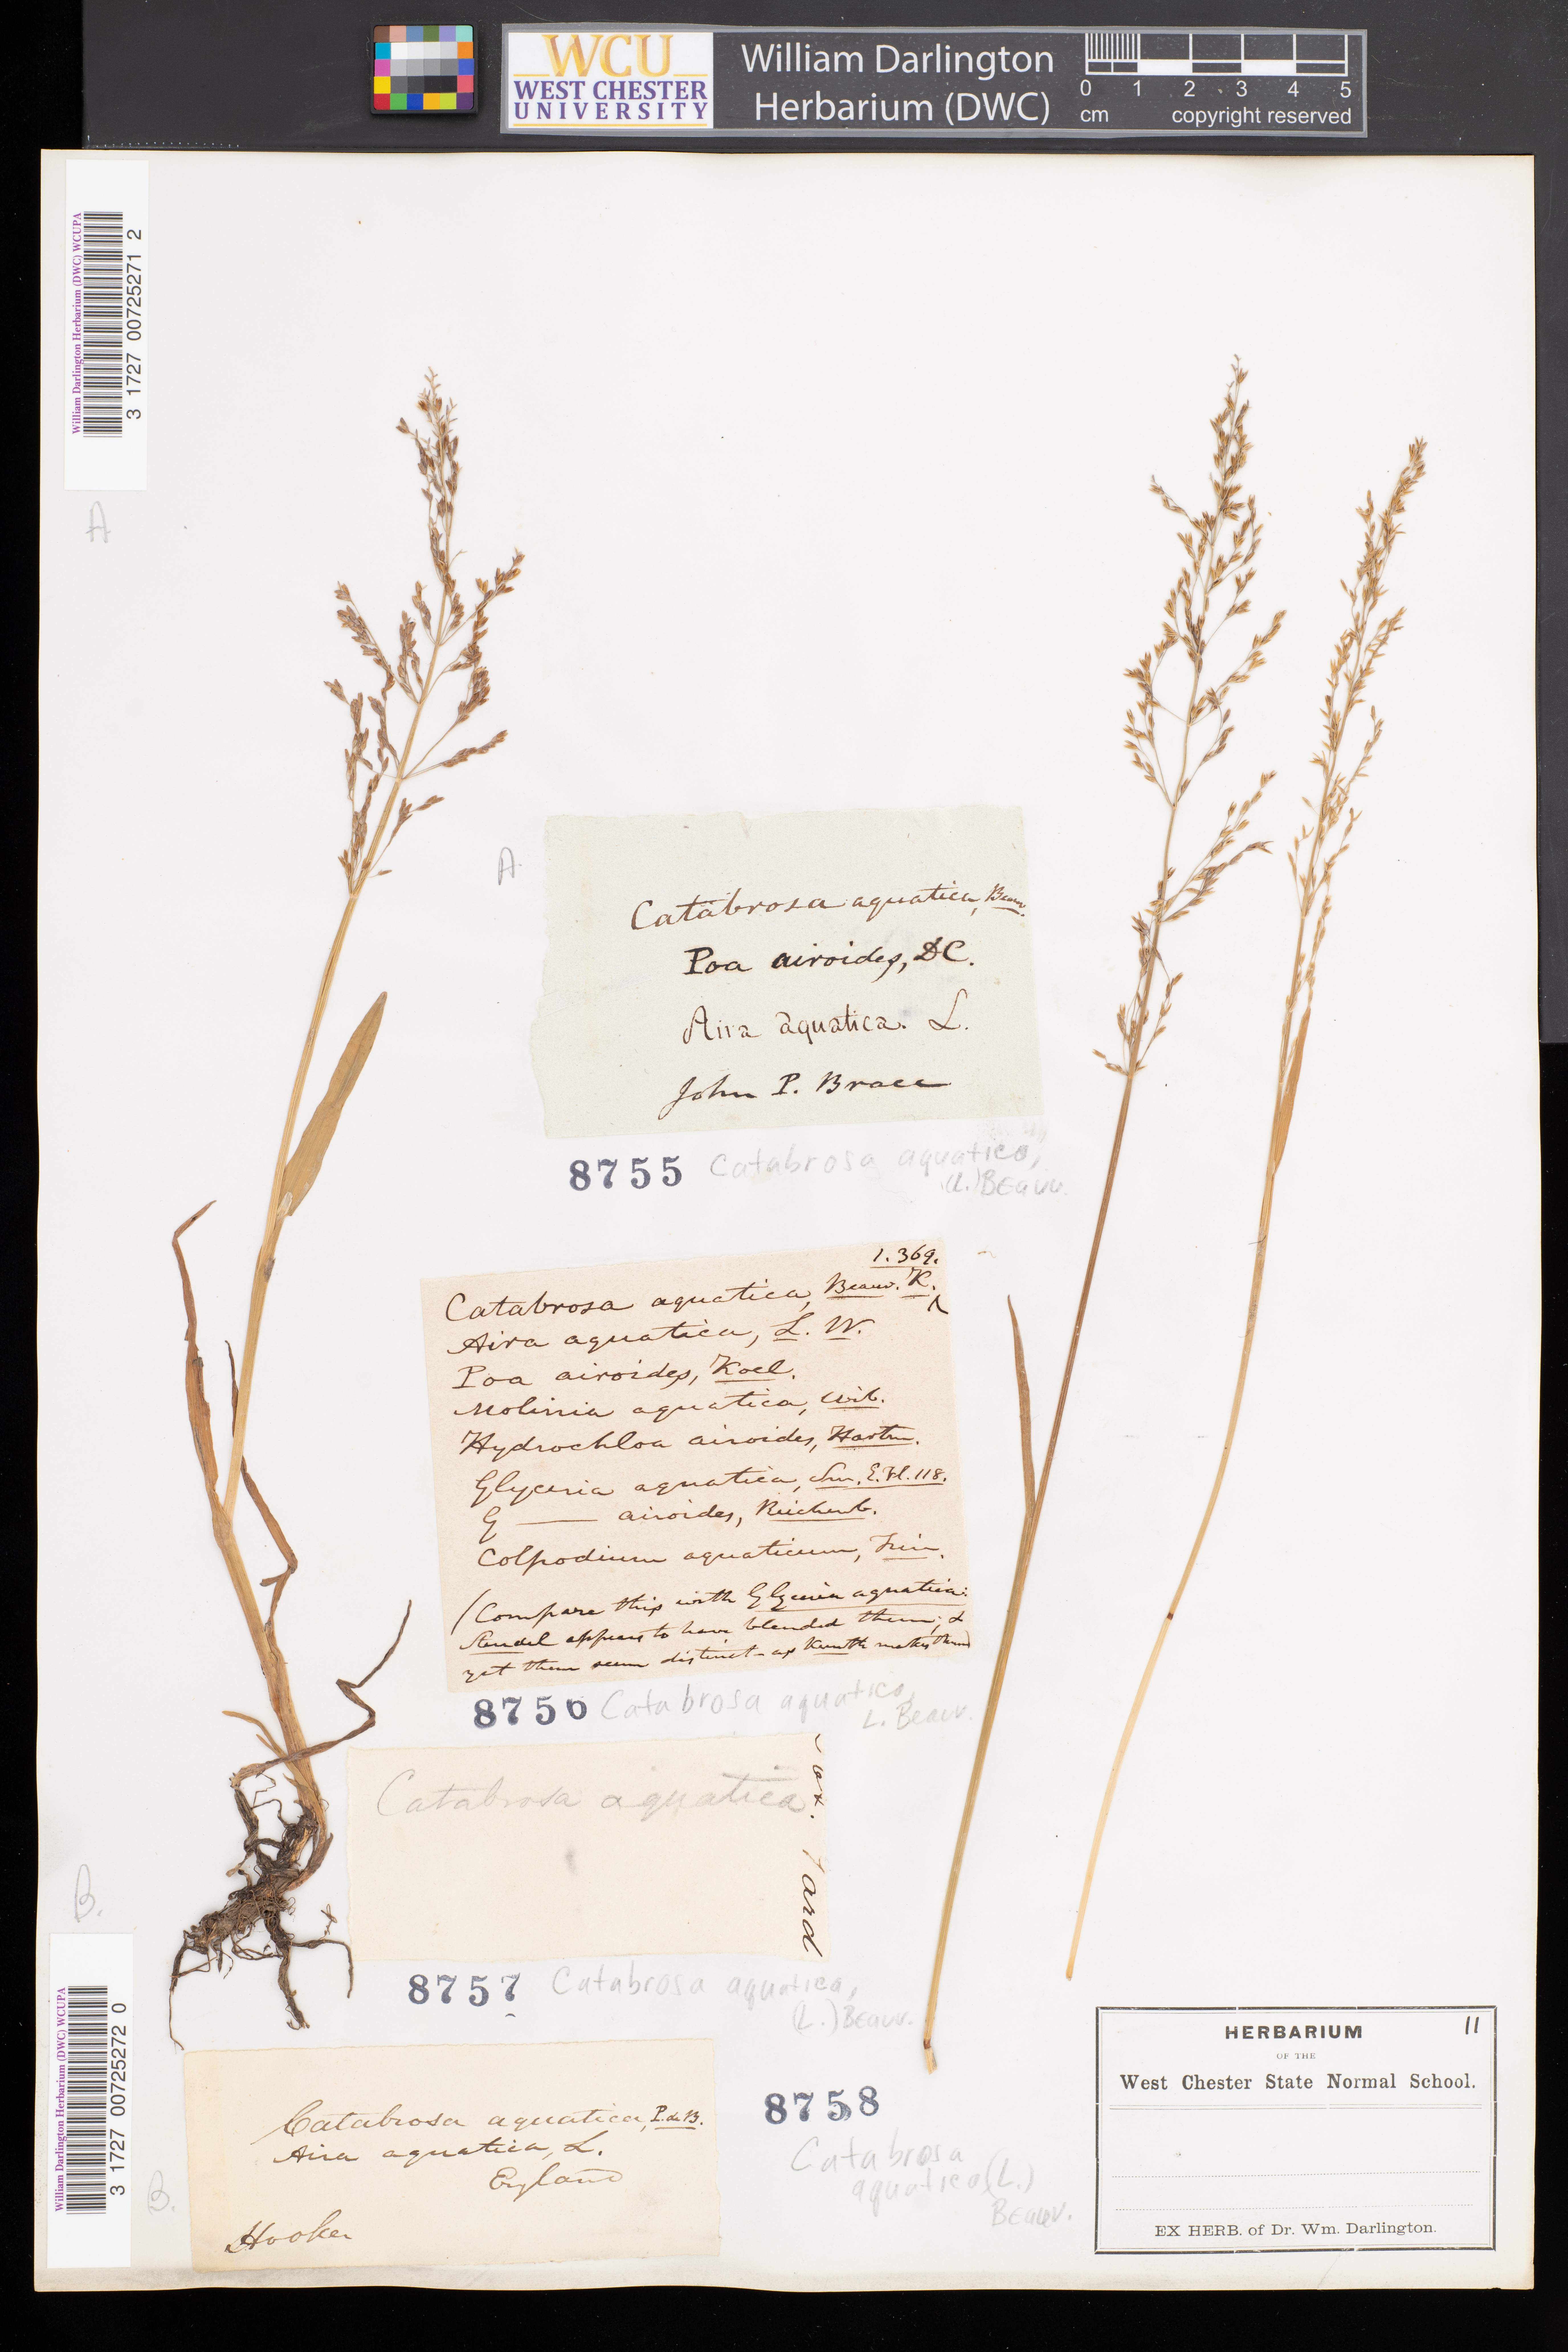 WCU
WEST CHESTER
UNIVERSITY
William Darlington
Herbarium (DWC)
0 1 2 3 4 5
cm copyright reserved
William Darlington Herbarium (DWC) WCUPA
3 1727 00725271 2
A
A
Catabrosa aquatica, Beauv.
Poa airoides, DC.
Aira aquatica. L.
John P. Brace
8755 Catabrosa aquatica,
(L.) Beauv.
1.369.
Catabrosa aquatica, Beauv. K. ^
Aira aquatica, L. W.
Poa airoides, Koel.
Molinia aquatica, Wib.
Hydrochloa airoides, Hartm.
Glyceria aquatica, Sm. E. Fl. 118.
G — airoides, Reichenb.
Colpodium aquaticum, Trin.
(Compare this with Glyceria aquatica:
Steudel appears to have blended them; &
yet them seem distinct - as Kunth makes them)
8756 Catabrosa aquatica,
L. Beauv.
Catabrosa aquatica
ard
8757 Catabrosa aquatica,
(L.) Beauv.
B.
William Darlington Herbarium (DWC) WCUPA
3 1727 00725272 0
B.
Catabrosa aquatica, P. de B.
Aira aquatica, L.
England
Hooker
8758
Catabrosa
aquatica (L.)
Beauv.
HERBARIUM 11
OF THE
West Chester State Normal School.
EX HERB. of Dr. Wm. Darlington.